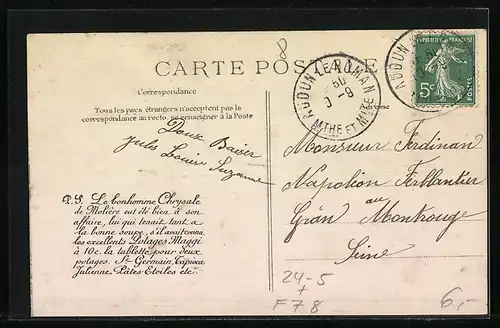 8
CARTE POSTALE
AUDUN-LE-ROMAN
MTHE ET MLLE
AUDUN
RÉPUBLIQUE FRANÇAISE
5c
POSTES
Correspondance
Tous les pays étrangers n'acceptent pas la
correspondance au recto, se renseigner à la Poste
Doux Baiser
Jules Louise Suzanne
P.S. Le bonhomme Chrysale
de Molière eut été bien à son
affaire, lui qui tenait tant à
la bonne soupe, s'il avait connu
les excellents Potages Maggi
à 10c. la tablette pour deux
potages. St-Germain, Tapioca
Julienne, Pâtes Etoiles etc.
Adresse
Monsieur Ferdinan
Napoléon
au
Gran Montrouge
Seine
24-5
F78
6,-